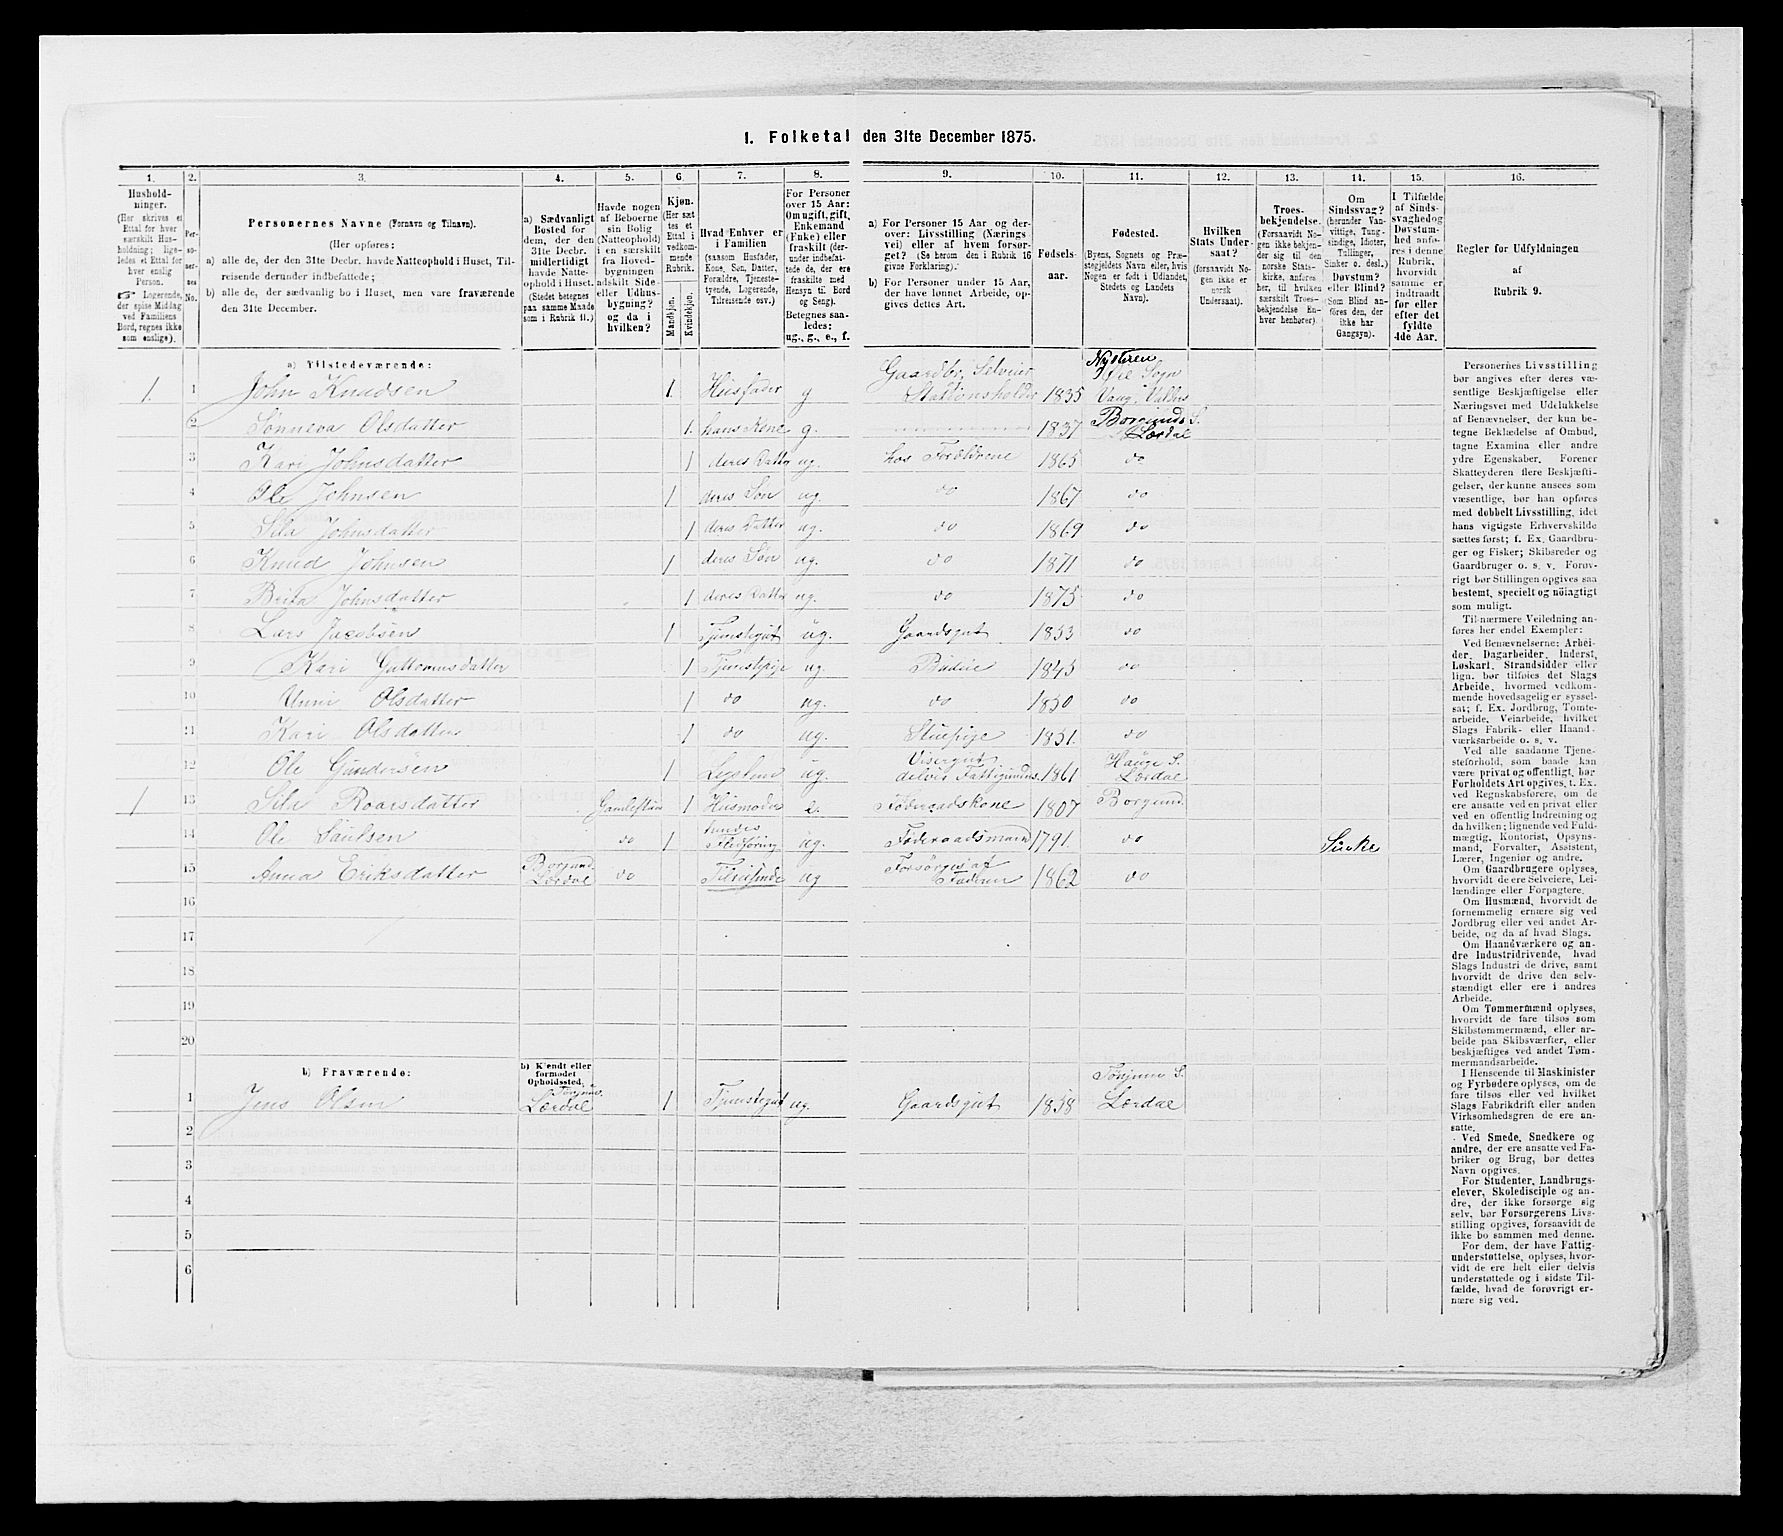 1. Folketal den 31te December 1875.
1. 2. 3. 4. 5. 6. 7. 8. 9. 10. 11. 12. 13. 14. 15. 16.
Husholdninger.
(Her skrives et
Ettal for hver
særskilt Husholdning;
ligeledes et Ettal for
hver enslig
Person.
Logerende,
der spise Middag
ved Familiens
Bord, regnes ikke
som enslige).
Personernes No.
Personernes Navne (Fornavn og Tilnavn).
(Her opføres:
a) alle de, der den 31te Decbr. havde Natteophold i Huset, Tilreisende
derunder indbefattede;
b) alle de, der sædvanlig bo i Huset, men vare fraværende
den 31te December.
a) Sædvanligt
Bosted for
dem, der den
31te Decbr.
midlertidigt
havde Natteophold
i Huset.
(Stedet betegnes
paa samme Maade
som i Rubrik 11.)
Havde nogen
af Beboerne
sin Bolig
(Natteophold)
i en særskilt
fra Hovedbygningen
adskilt Side-
eller Udhusbygning?
og da i
hvilken?
Kjøn.
(Her sættes et
Ettal i
vedkommende
Rubrik.
Mandkjøn.
Kvindekjøn.
Hvad Enhver er
i Familien
(saasom Husfader,
Kone, Søn, Datter,
Forældre, Tjenestetyende,
Logerende,
Tilreisende osv.)
For Personer
over 15 Aar:
Om ugift, gift,
Enkemand
(Enke) eller
fraskilt (derunder
indbefattede
de, der ere
fraskilte med
Hensyn til Bord
og Seng).
Betegnes saaledes:
ug., g., e., f.
a) For Personer 15 Aar og derover:
Livsstilling (Næringsvei)
eller af hvem forsørget?
(Se herom den i Rubrik 16
givne Forklaring).
b) For Personer under 15 Aar,
der have lønnet Arbeide, opgives
dettes Art.
Fødselsaar.
Fødested.
(Byens, Sognets og Præstegjeldets
Navn eller, hvis
Nogen er født i Udlandet,
Stedets og Landets
Navn).
Hvilken
Stats Undersaat?
(forsaavidt Nogen
ikke er
norsk
Undersaat).
Troesbekjendelse.
(Forsaavidt Nogen
ikke bekjender
sig til den
norske Statskirke,
anføres
her, til hvilken
særskilt Troesbekjendelse
Enhver
henhører).
Om
Sindssvag?
(herunder Vanvittige,
Tungsindige,
Idioter,
Tullinger,
Sinker o. desl.)
Døvstum?
eller Blind?
(Som Blind anføres
den, der
ikke har
Gangsyn).
I Tilfælde
af Sindssvaghed
og
Døvstumhed
anføres
i denne
Rubrik,
hvorvidt
samme er
indtraadt
før eller
efter det
fyldte
4de Aar.
Regler for Udfyldningen
af
Rubrik 9.
a) Tilstedeværende:
1. 1 John Knudsen 1. Husfader g Gaardbr. Selveier Stationsholder 1835 Nysteren Øie Sogn Vang, Valders
2 Sønneva Olsdatter 1. hans Kone g. 1837 Borgunds S. Lærdal
3 Kari Johnsdatter 1 deres Datter ug. hos Forældrene 1865 do
4 Ole Johnsen 1 deres Søn ug. do 1867 do
5 Sila Johnsdatter 1 deres Datter ug. do 1869 do
6 Knud Johnsen 1 deres Søn ug. do 1871 do
7 Brita Johnsdatter 1 deres Datter ug. do 1875 do
8 Lars Jacobsen 1 Tjenstegut ug. Gaardsgut 1853 do
9 Kari Guttormsdatter 1 Tjenstepige ug. Budeie 1845 do
10 Unni Olsdatter 1 do ug. do 1850 do
11 Kari Olsdatter 1 do ug. Stuepige 1851. do
12 Ole Gundersen 1 Legdem ug. Visergut delvis Fattigunds. 1861 Hauge S. Lærdal
1 13 Sila Roarsdatter Gamlestuen 1 Husmoder e. Føderaadskone 1807 Borgund
14 Ole Saulsen do 1 hendes Fledføring ug. Føderaadsmand 1791. do Sinke
15 Anna Eriksdatter Borgund Lærdal do Tilreisende ug Forsørges af Faderen 1862 do
16
17
18
19
20
b) Fraværende:
b) Kjendt eller
formodet
Opholdssted.
1 Jens Olsen Tønjum Lærdal 1 Tjenstegut ug. Gaardsgut 1858 Tønjum S. Lærdal
2
3
4
5
6
Personernes Livsstilling
bør angives efter deres væsentlige
Beskjæftigelse eller
Næringsvei med Udelukkelse
af Benævnelser, der kun betegne
Beklædelse af Ombud,
tagne Examina eller andre
ydre Egenskaber. Forener
Skatteyderen flere Beskjæftigelser,
der kunne ansees som
væsentlige, bør han opføres
med dobbelt Livsstilling, idet
hans vigtigste Erhvervskilde
sættes først; f. Ex. Gaardbruger
og Fisker; Skibsreder og
Gaardbruger o. s. v. Forøvrigt
bør Stillingen opgives saa
bestemt, specielt og nøiagtigt
som muligt.
Til nærmere Veiledning anføres
her endel Exempler:
Ved Benævnelserne: Arbeider,
Dagarbeider, Inderst,
Løskarl, Strandsidder eller
lign. bør tilføies det Slags
Arbeide, hvormed vedkommende
hovedsagelig er sysselsat;
f. Ex. Jordbrug, Tomtearbeide,
Veiarbeide, hvilket
Slags Fabrik- eller Haandværksarbeide
o. s. v.
Ved alle saadanne Tjenesteforhold,
som baade kan
være privat og offentligt, bør
Forholdets Art opgives, t. Ex.
ved Regnskabsførere, om de
ere ansatte ved en privat eller
ved en offentlig Indretning og
da hvilken; lignende ved Fuldmægtig,
Kontorist, Opsynsmand,
Forvalter, Assistent,
Lærer, Ingeniør og andre.
Om Gaardbrugere oplyses,
hvorvidt de ere Selveiere, Leilændinge
eller Forpagtere.
Om Husmænd, hvorvidt de
fornemmelig ernære sig ved
Jordbrug eller ved andet Arbeide,
og da af hvad Slags.
Om Haandværkere og andre
Industridrivende, hvad
Slags Industri de drive, samt
hvorvidt de drive den selvstændigt
eller ere i andres
Arbeide.
Om Tømmermænd oplyses,
hvorvidt de fare tilsøs som
Skibstømmermænd, eller arbeide
paa Skibsværfter, eller
beskjæftiges ved andet Tømmermandsarbeide.
I Henseende til Maskinister
og Fyrbødere oplyses, om de
fare tilsøs eller ved hvilket
Slags Fabrikdrift eller anden
Virksomhedsgren de ere ansatte.
Ved Smede, Snedkere og
andre, der ere ansatte ved Fabriker
og Brug, bør dettes
Navn opgives.
For Studenter, Landbrugselever,
Skoledisciple og andre,
der ikke forsørge sig
selv, bør Forsørgerens Livsstilling
opgives, forsaavidt de
ikke bo sammen med denne.
For dem, der have Fattigunderstøttelse,
oplyses, hvorvidt
de ere helt eller delvis
understøttede og i sidste Tilfælde,
hvad de forøvrigt ernære
sig ved.